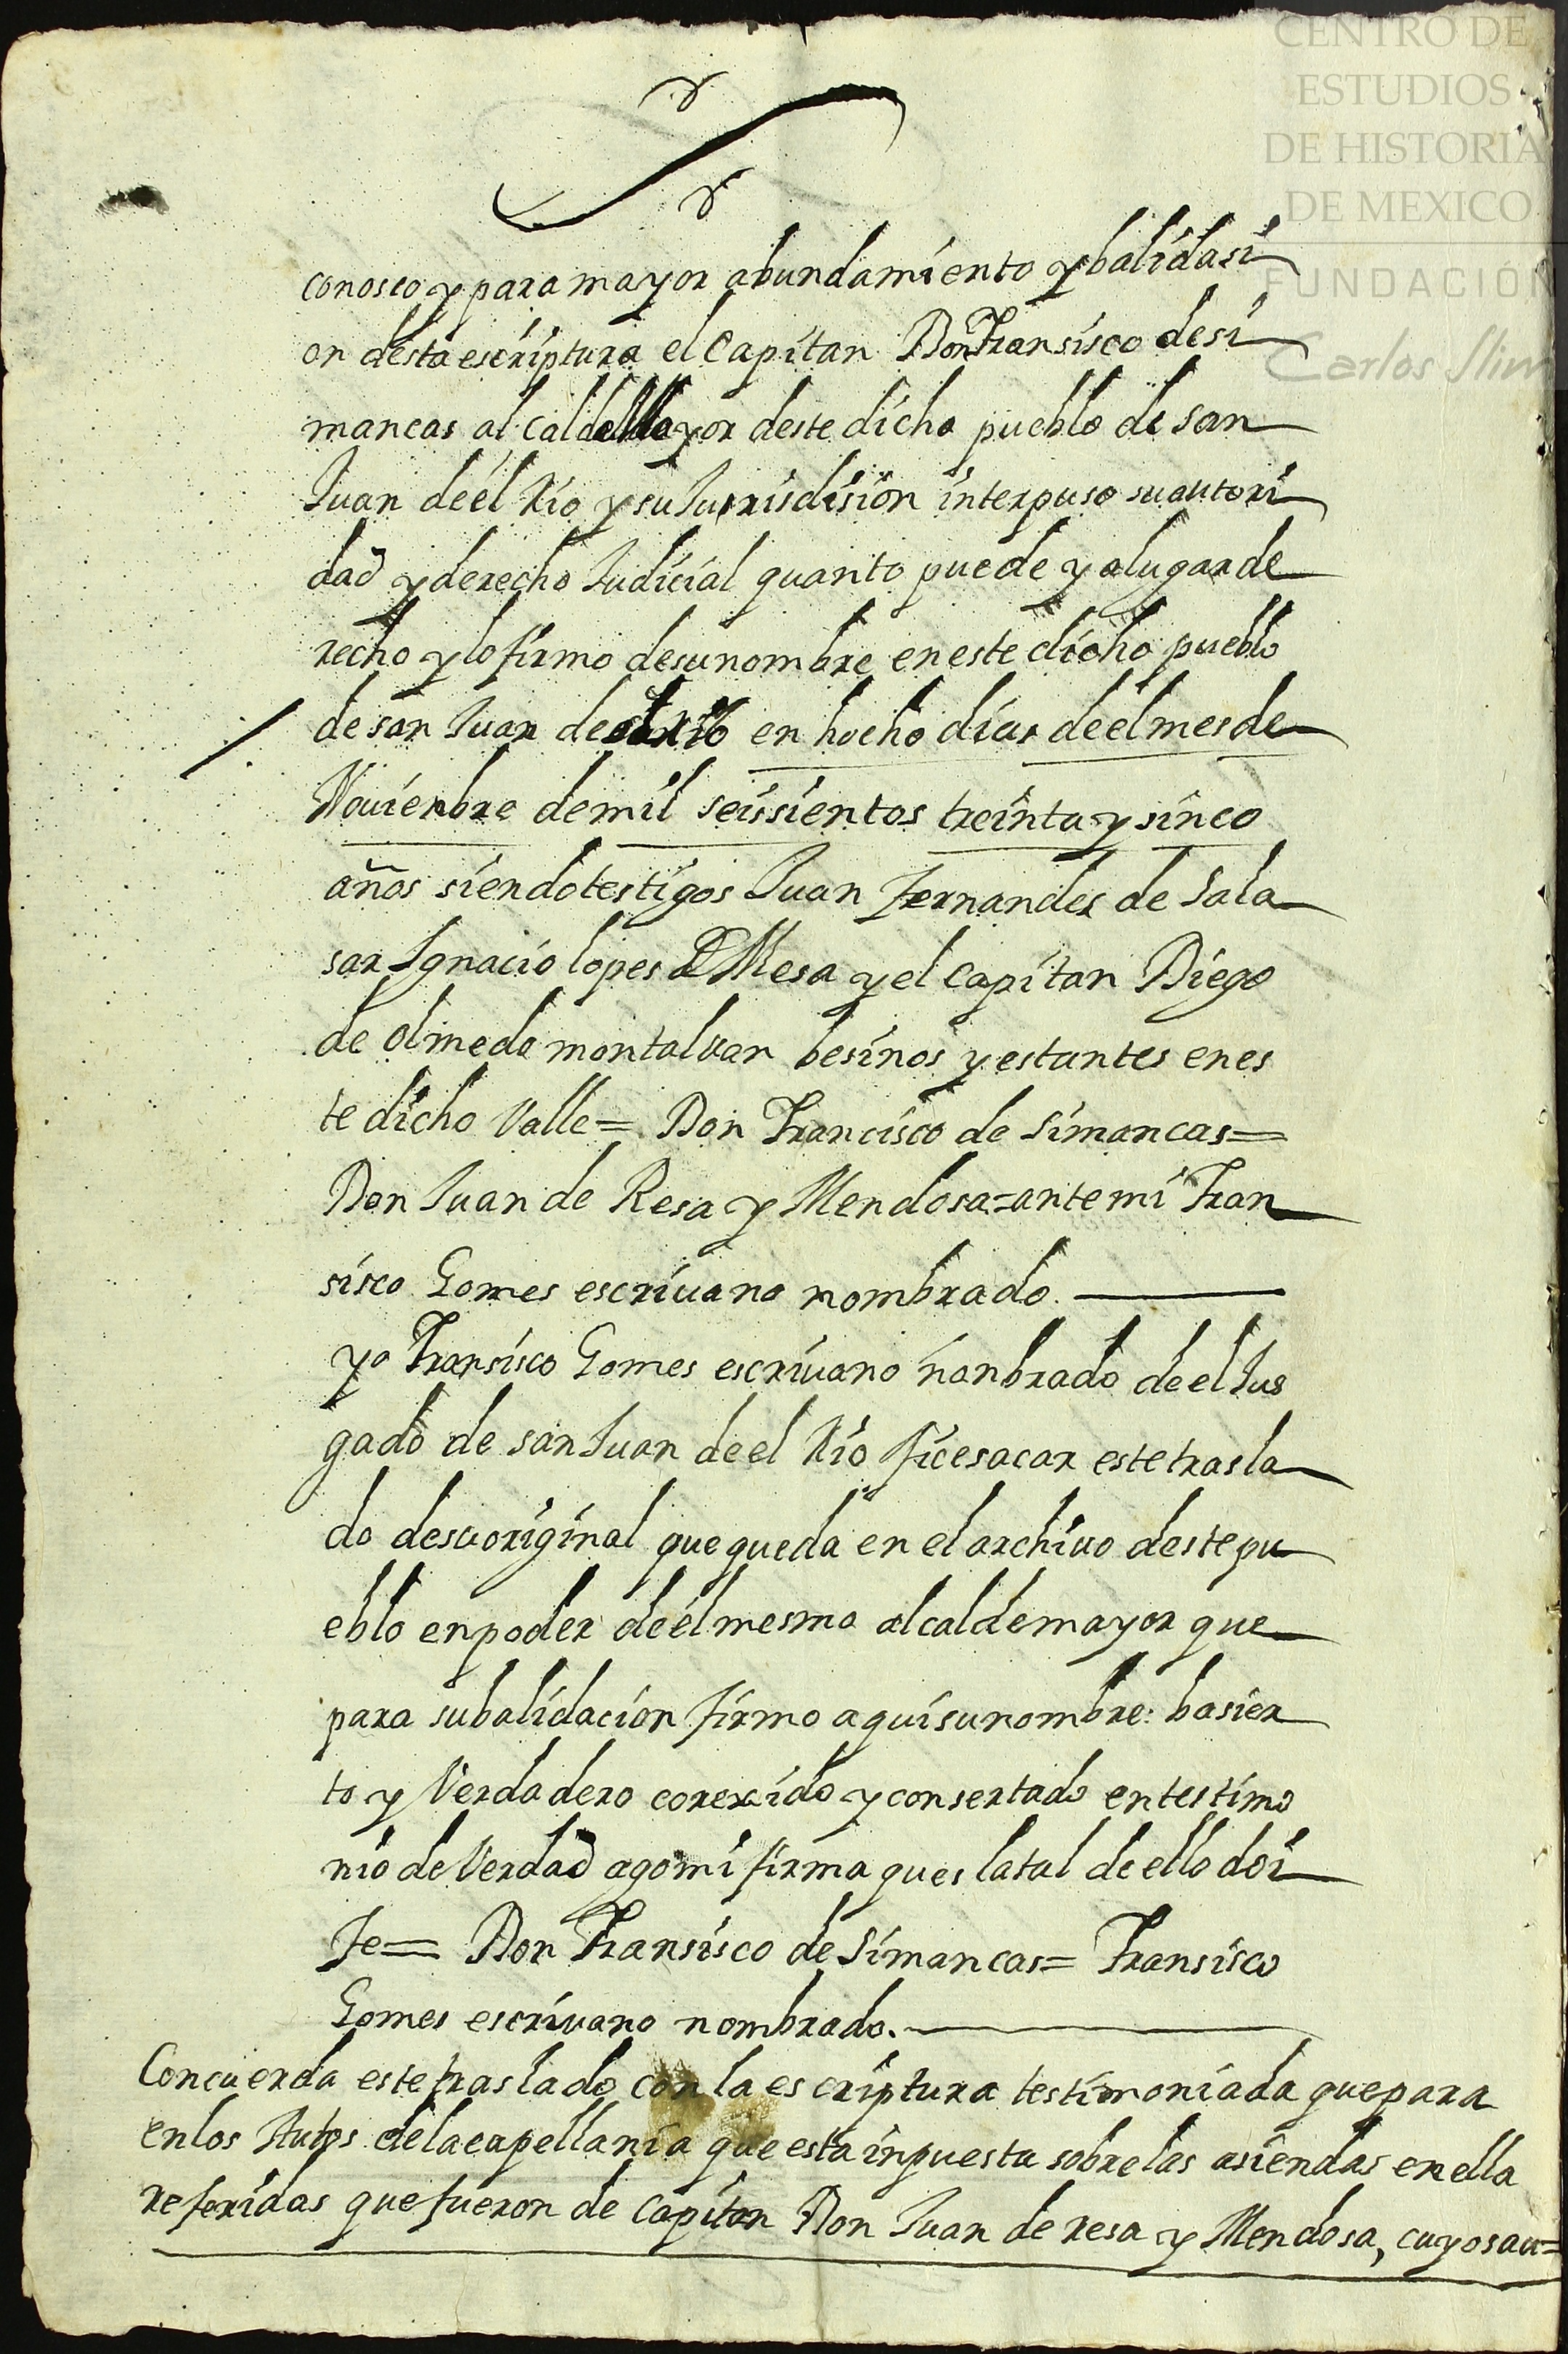 CENTRO DE
ESTUDIOS
DE HISTORIA
DE MEXICO
FUNDACIÓN
Carlos Slim
conosco y para mayor abundamiento y balidasi
on desta escriptura el Capitan Don Fransisco desi
mancas alcalde Mayor deste dicho pueblo de san
Juan de el Rio y su Jurisdision interpuso su autori
dad y derecho Judicial quanto puede y a lugar de
recho y lo firmo de su nombre en este dicho pueblo
de san Juan de el rio en hocho dias de el mes de
Nouienbre de mil seissientos treinta y sinco
años siendo testigos Juan Fernandes de Sala
sar Ygnacio lopes de Mesa y el Capitan Diego
de olmedo montaluan besinos y estantes en es
te dicho Valle = Don Francisco de Simancas =
Don Juan de Resa y Mendosa = ante mi Fran
sisco Gomes escriuano nombrado
yo Fransisco Gomes escriuano nonbrado de el Jus
gado de san Juan de el Rio fice sacar este trasla
do de su original que queda en el archiuo deste pu
eblo en poder de el mesmo alcalde mayor que
para su balidacion firmo aqui su nombre: ba sier
to y Verdadero corexido y consertado en testimo
nio de Verdad ago mi firma ques la tal de ello doi
Fe = Don Fransisco de Simancas = Fransisco
Gomes escriuano nombrado.
Concuerda este traslado con la escriptura testimoniada que para
en los Autos de la capellania que esta inpuesta sobre las asiendas en ella
referidas que fueron de Capitan Don Juan de resa y Mendosa, cuyos au=